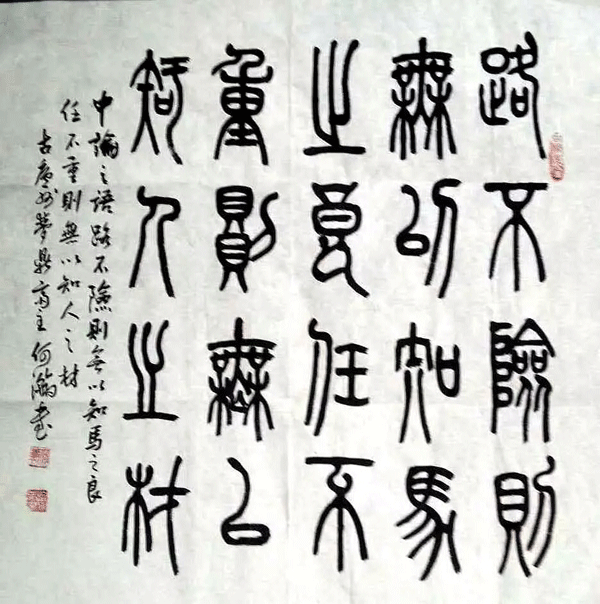 路不險則
無以知馬
之良任不
重則無以
知人之材
中論之語路不險則無以知馬之良
任不重則無以知人之材
古州夢鼎齋主何書